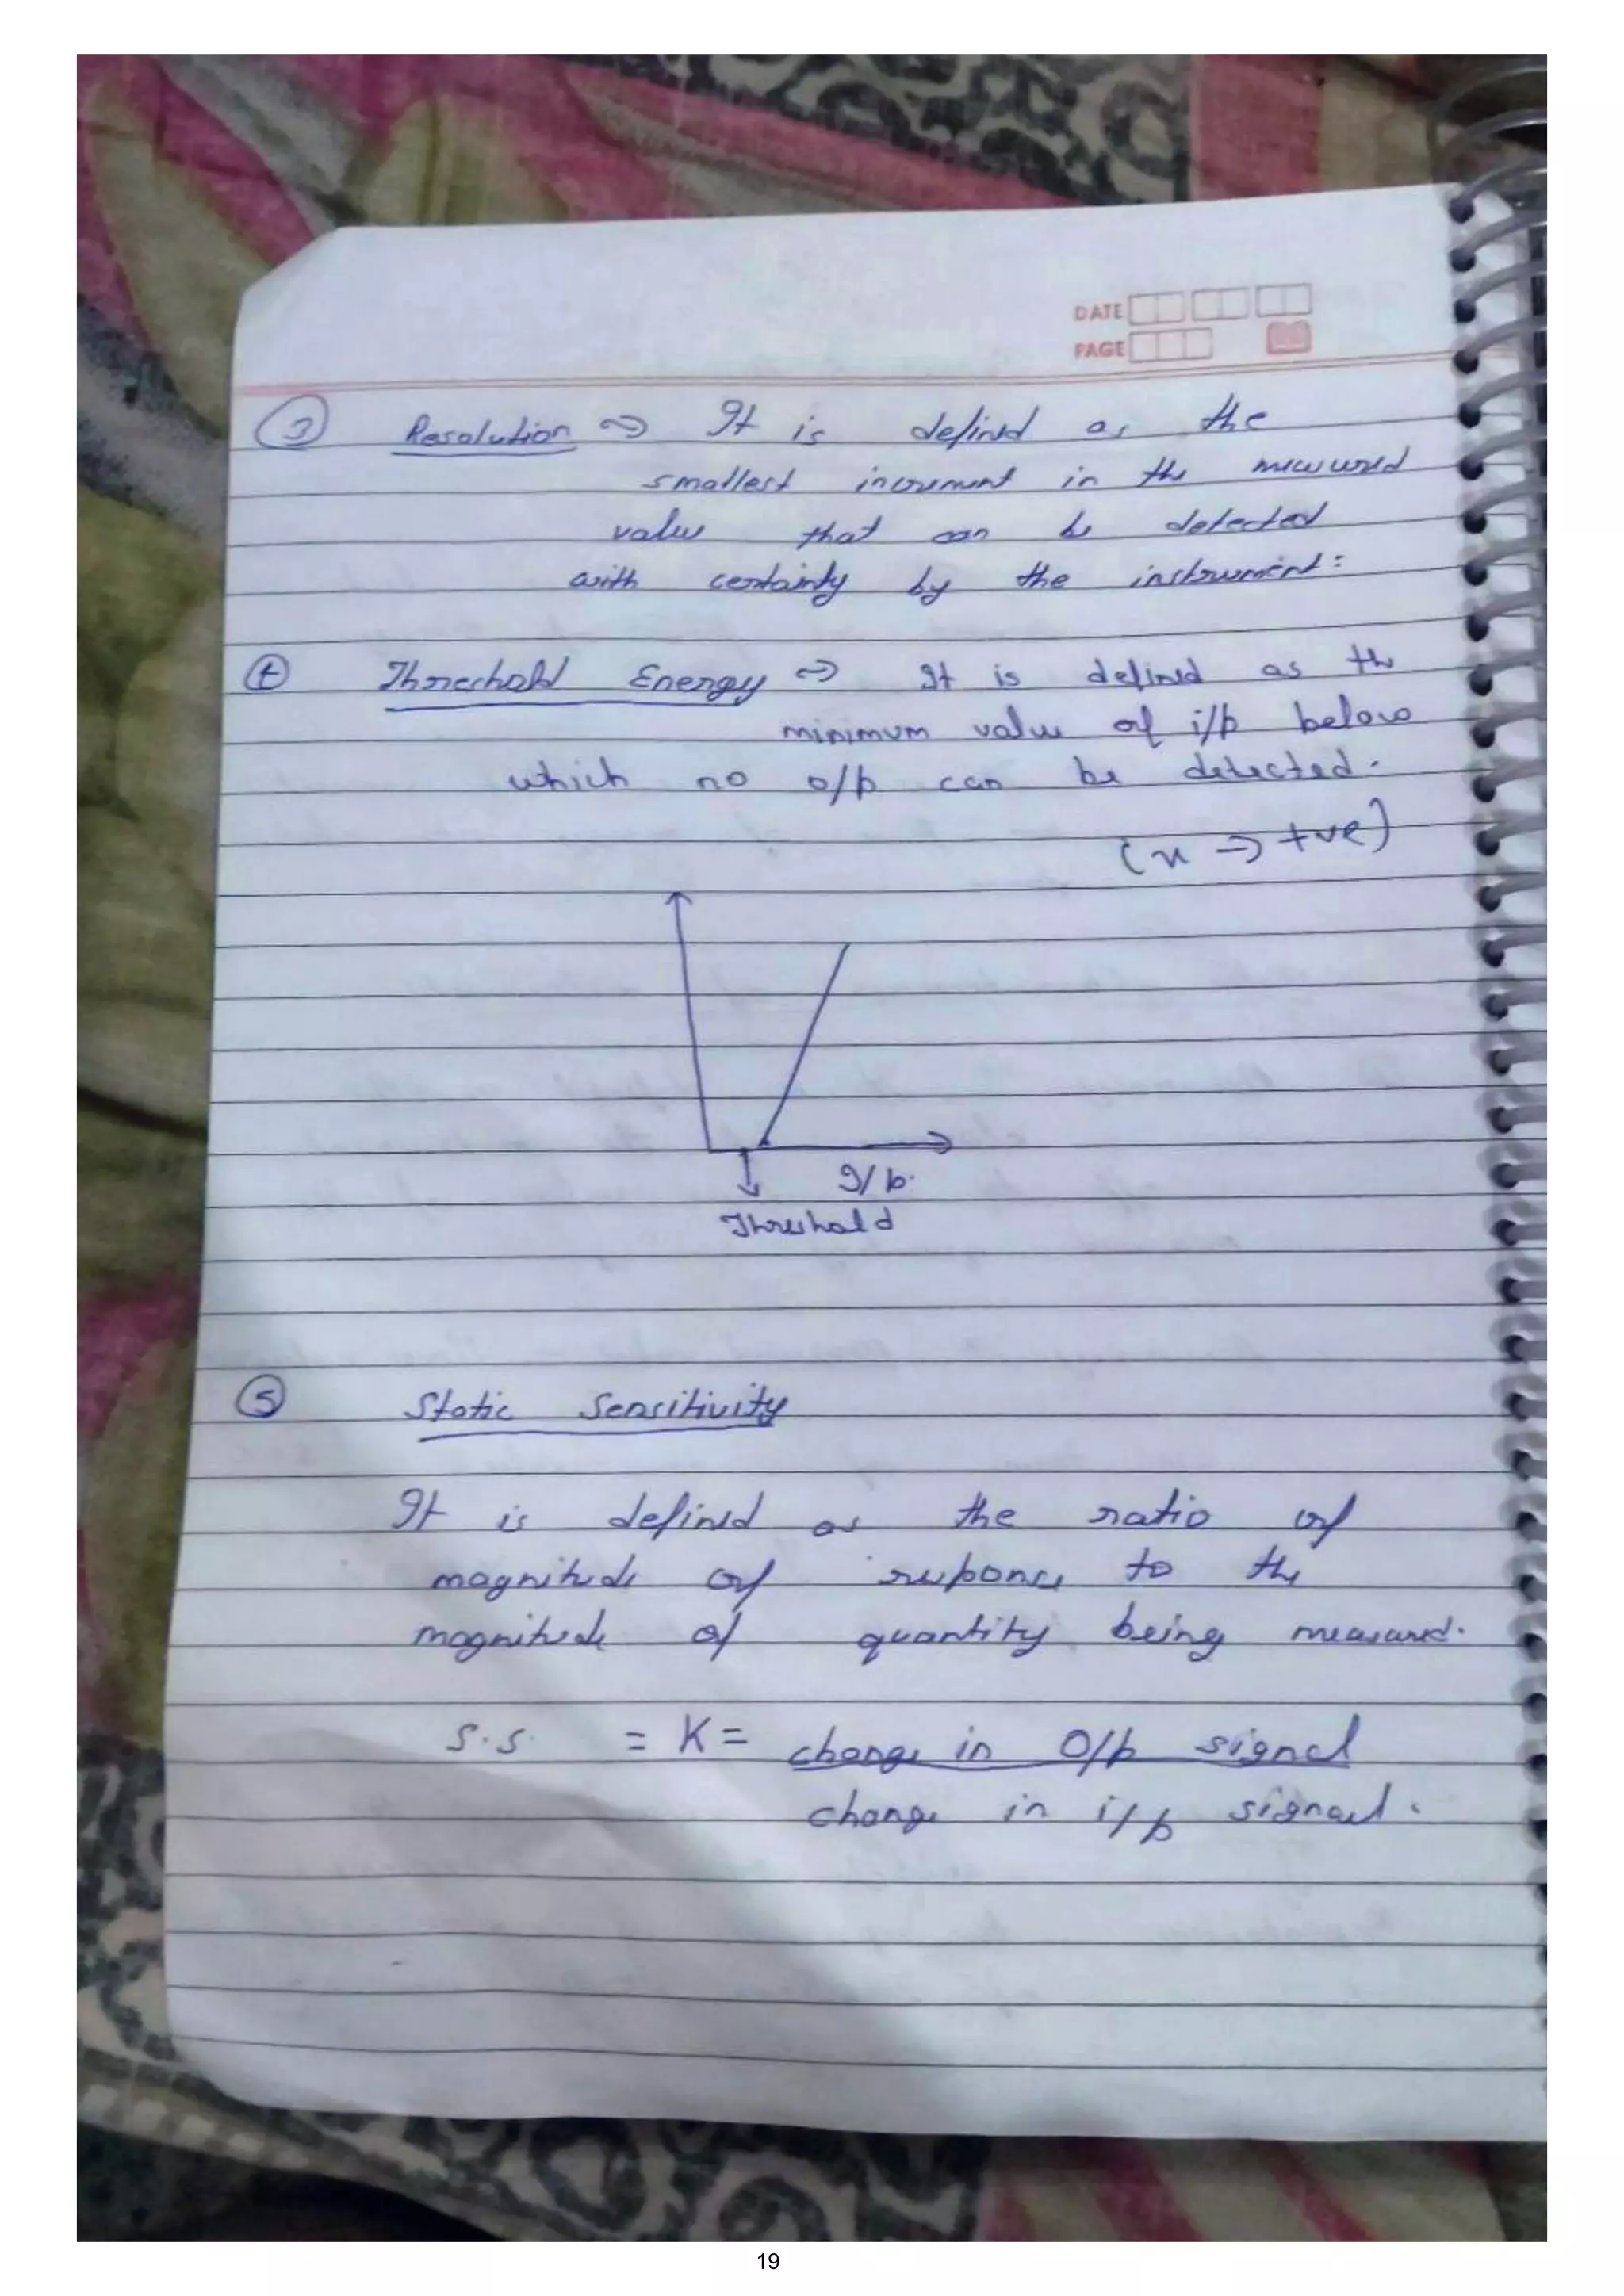 DATE
PAGE
③ Resolution ⇒ It is defined as the
smallest increment in the measured
value that can be detected
with certainty by the instrument:
④ Threshold Energy ⇒ It is defined as the
minimum value of i/p below
which no o/p can be detected.
(x ⇒ +ve)
I/p.
Threshold
⑤ Static Sensitivity
It is defined as the ratio of
magnitude of response to the
magnitude of quantity being measured.
S.S. = K = change in O/p signal
change in i/p signal.
19